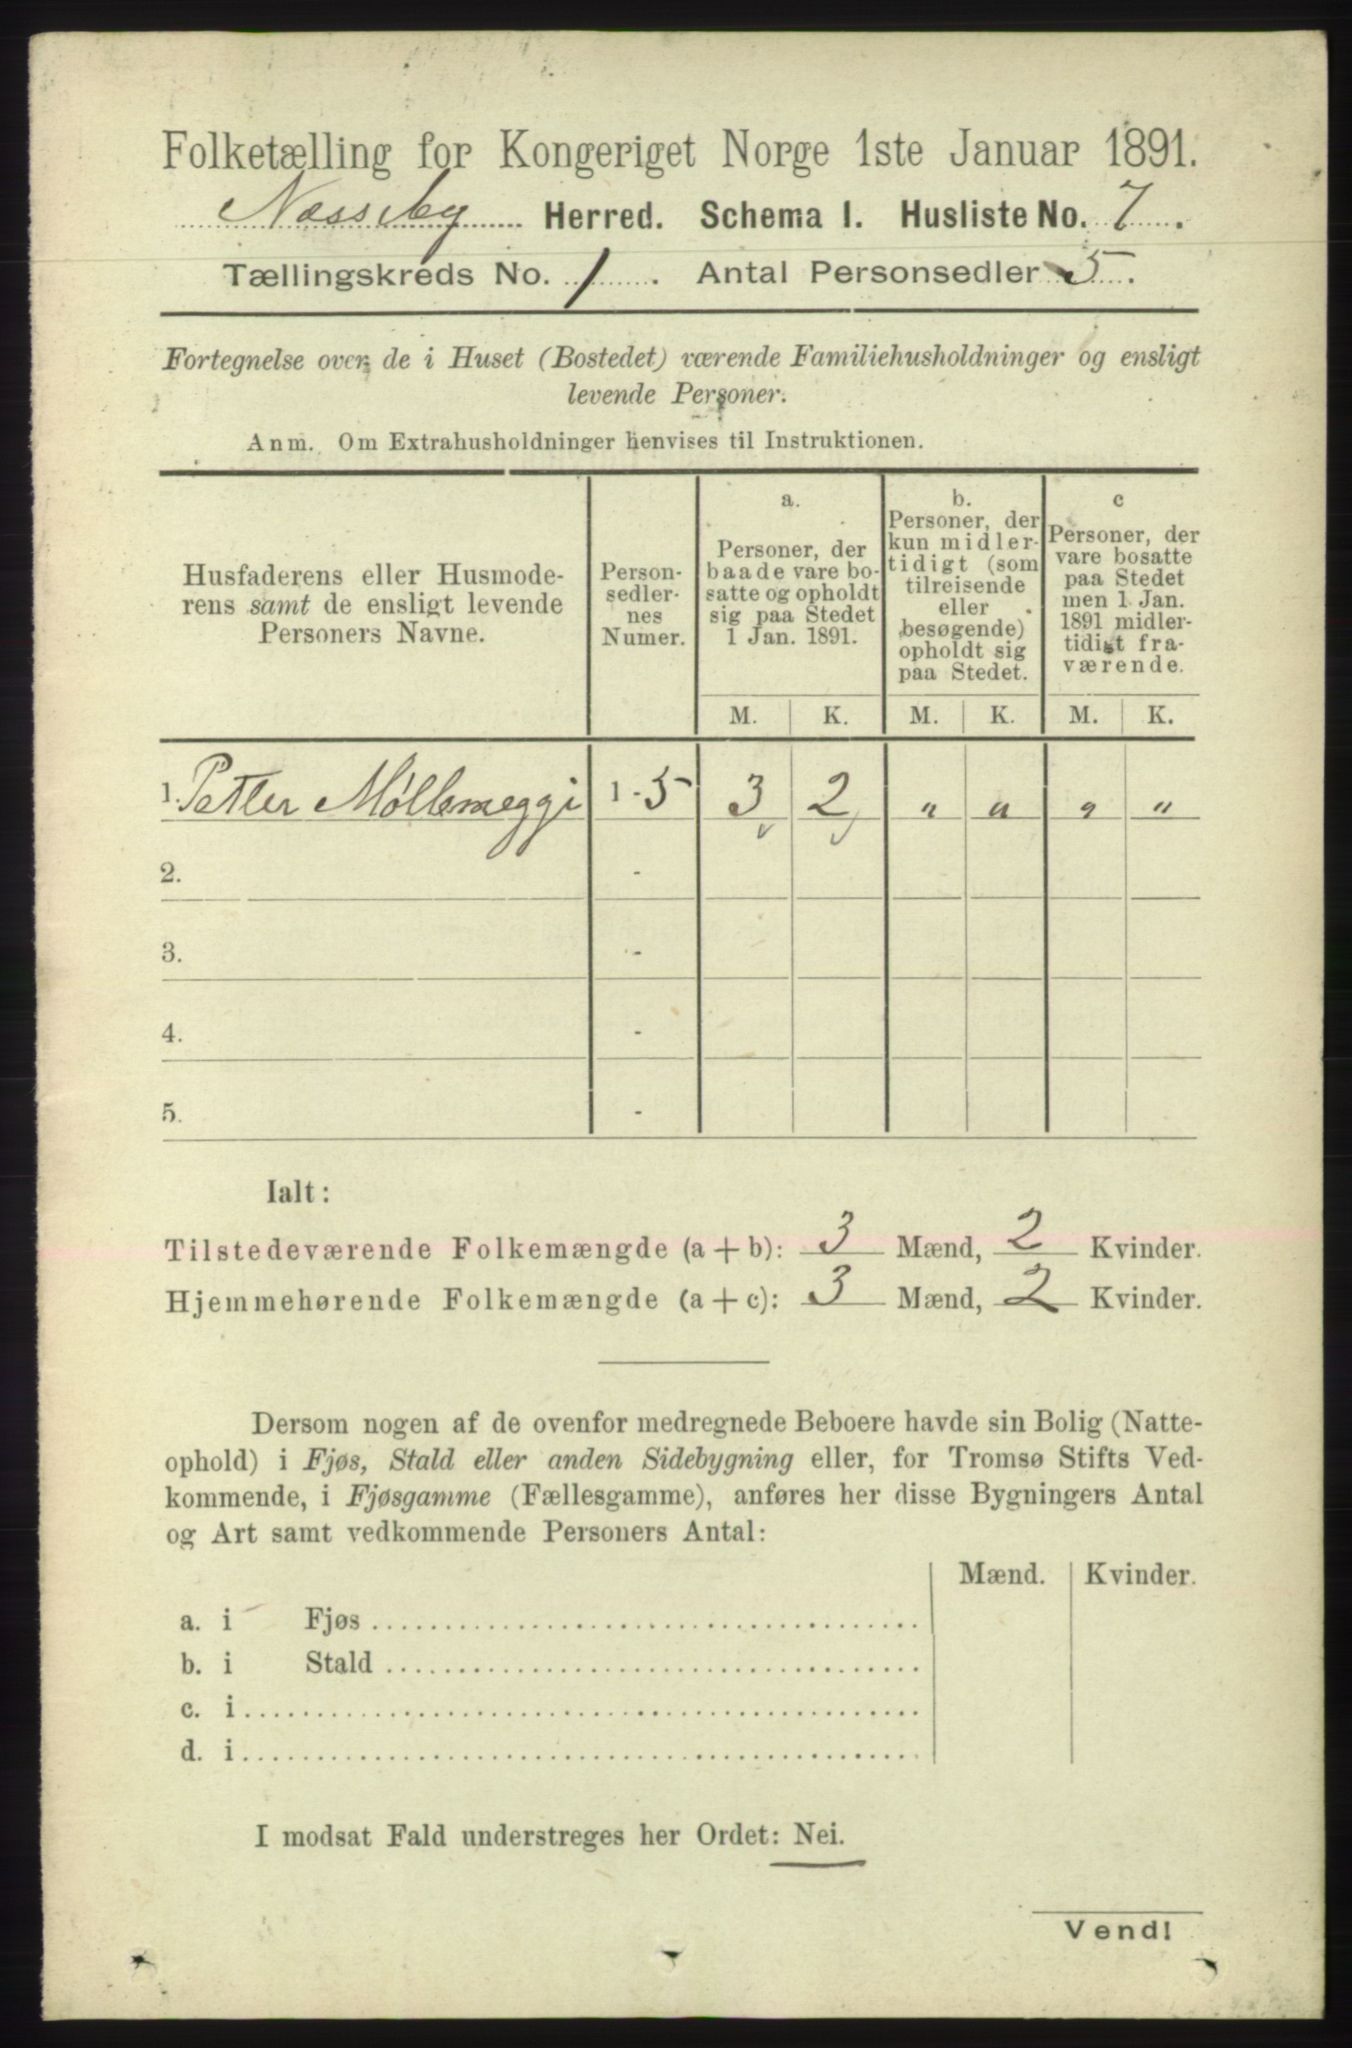 Folketælling for Kongeriget Norge 1ste Januar 1891.
Næsseby Herred. Schema I. Husliste No. 7.
Tællingskreds No. 1. Antal Personsedler 5.
Fortegnelse over de i Huset (Bostedet) værende Familiehusholdninger og ensligt
levende Personer.
Anm. Om Extrahusholdninger henvises til Instruktionen.
Husfaderens eller Husmode-
rens samt de ensligt levende
Personers Navne.
Person-
sedler-
nes
Numer.
a.
Personer, der
baade vare bo-
satte og opholdt
sig paa Stedet
1 Jan. 1891.
b.
Personer, der
kun midler-
tidigt (som
tilreisende
eller
besøgende)
opholdt sig
paa Stedet.
c
Personer, der
vare bosatte
paa Stedet
men 1 Jan.
1891 midler-
tidigt fra-
værende.
M. K. M. K. M. K.
1. Petter Møllemeggi 1 - 5 3 2 " " " "
2. -
3. -
4. -
5. -
Ialt:
Tilstedeværende Folkemængde (a + b): 3 Mænd, 2 Kvinder.
Hjemmehørende Folkemængde (a + c): 3 Mænd, 2 Kvinder.
Dersom nogen af de ovenfor medregnede Beboere havde sin Bolig (Natte-
ophold) i Fjøs, Stald eller anden Sidebygning eller, for Tromsø Stifts Ved-
kommende, i Fjøsgamme (Fællesgamme), anføres her disse Bygningers Antal
og Art samt vedkommende Personers Antal:
Mænd. Kvinder.
a. i Fjøs
b. i Stald
c. i
d. i
I modsat Fald understreges her Ordet: Nei.
Vend!